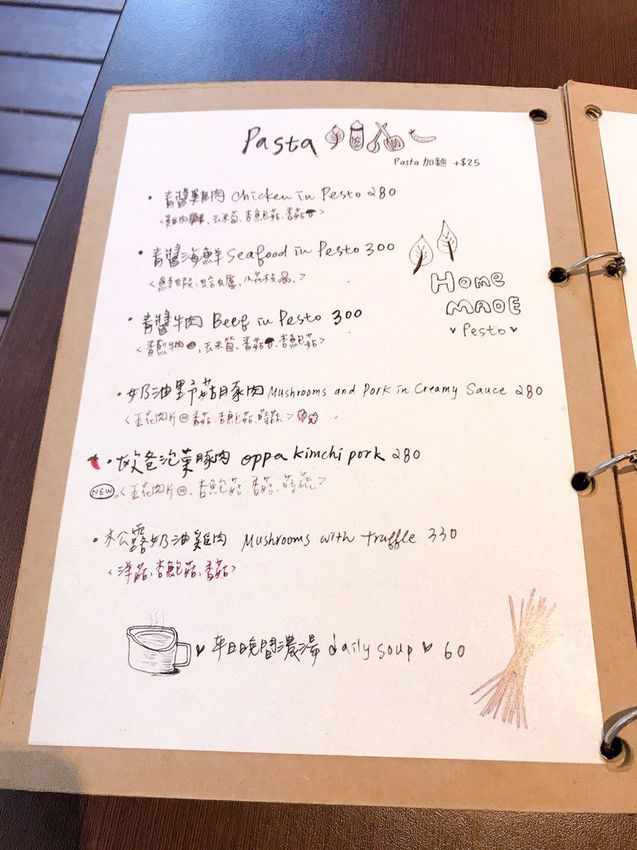 Pasta
Pasta 加麵 +$25
• 青醬雞肉 Chicken in Pesto 280
玉米筍、杏鮑菇、香菇>
• 青醬海鮮 Seafood in Pesto 300
<鮮蝦、蛤
Home
MADE
♥ Pesto ♥
• 青醬牛肉 Beef in Pesto 300
、玉米筍、香菇、杏鮑菇>
• 奶油野菇豚肉 Mushrooms and Pork in Creamy Sauce 280
<五花肉片、香菇、杏鮑菇、時蔬>
• 歐爸泡菜豚肉 oppa kimchi pork 280
NEW <五花肉片、杏鮑菇、香菇、時蔬>
• 松露奶油雞肉 Mushrooms with truffle 330
<洋菇、杏鮑菇、香菇>
♥ 平日晚間濃湯 daily soup ♥ 60